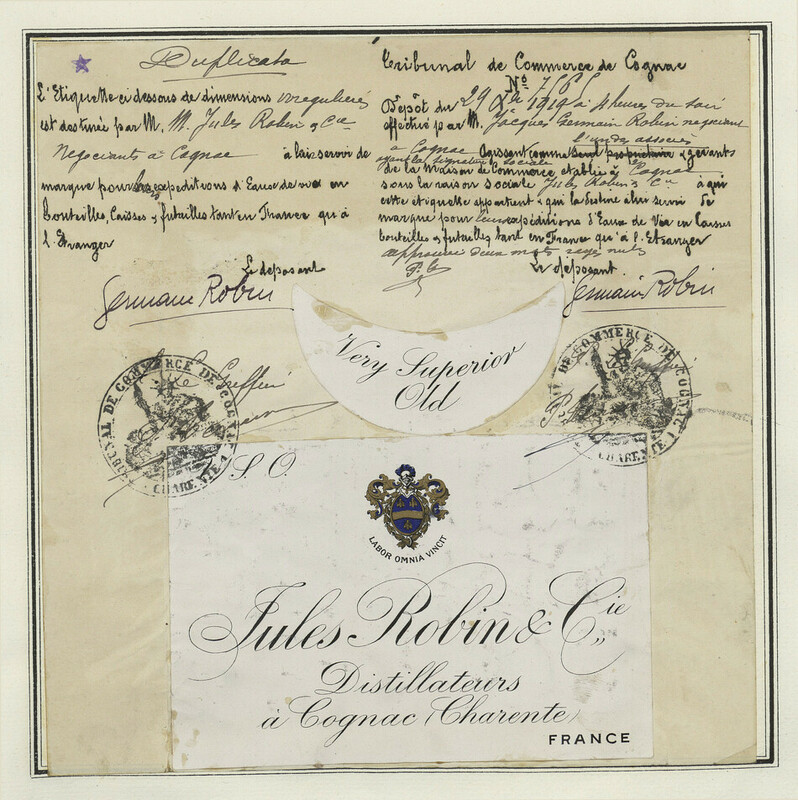 Duplicata
L'Etiquette ci dessous de dimensions irregulières
est destinée par M. M. Jules Robin & Cie
Negociants à Cognac à lui servir de
marque pour expeditions d'Eaux de vie en
bouteilles, Caisses & futailles tant en France qu'à
l'Etranger
Le deposant
Germain Robin
Tribunal de Commerce de Cognac
No
Dépôt du 29 1919 à 4 heures du soir
effectué par M. Jacques Germain Robin negociant
à Cognac l'un des associés
ayant la signature sociale
agissant comme & gérants
de la Maison de Commerce établie à Cognac
sous la raison sociale Jules Robin & Cie à qui
cette etiquette appartient & qui la destine à lui servir de
marque pour expéditions d'Eaux de Vie en caisses
bouteilles & futailles tant en France qu'à l'Etranger
approuvé deux mots rayés nuls
Le déposant
Germain Robin
TRIBUNAL DE COMMERCE DE COGNAC
CHARENTE
Le Greffier
TRIBUNAL DE COMMERCE DE COGNAC
CHARENTE
Very Superior
Old
S. O.
LABOR OMNIA VINCIT
Jules Robin & Cie
Distillateurs
à Cognac (Charente)
FRANCE